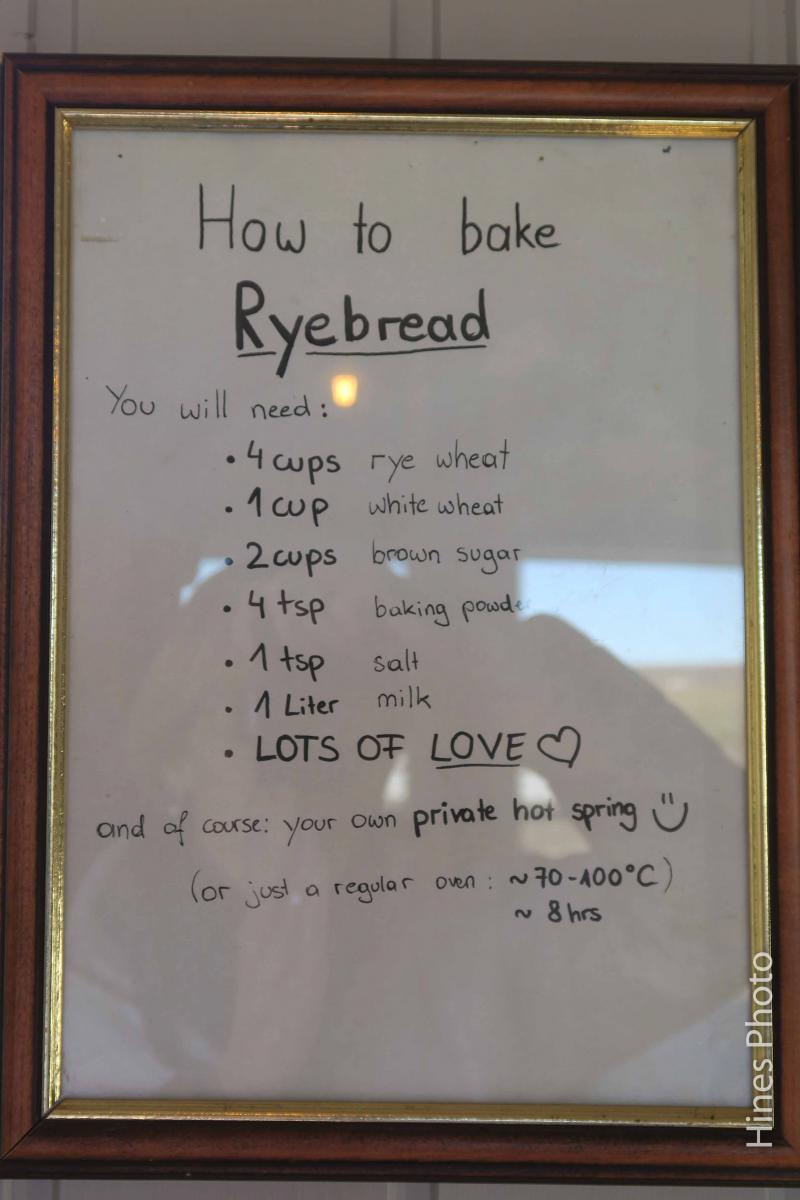 How to bake
Ryebread
You will need:
• 4 cups rye wheat
• 1 cup white wheat
• 2 cups brown sugar
• 4 tsp baking powde
• 1 tsp salt
• 1 Liter milk
• LOTS OF LOVE ♡
and of course: your own private hot spring ü
(or just a regular oven: ~70-100°C)
~ 8 hrs
Hines Photo